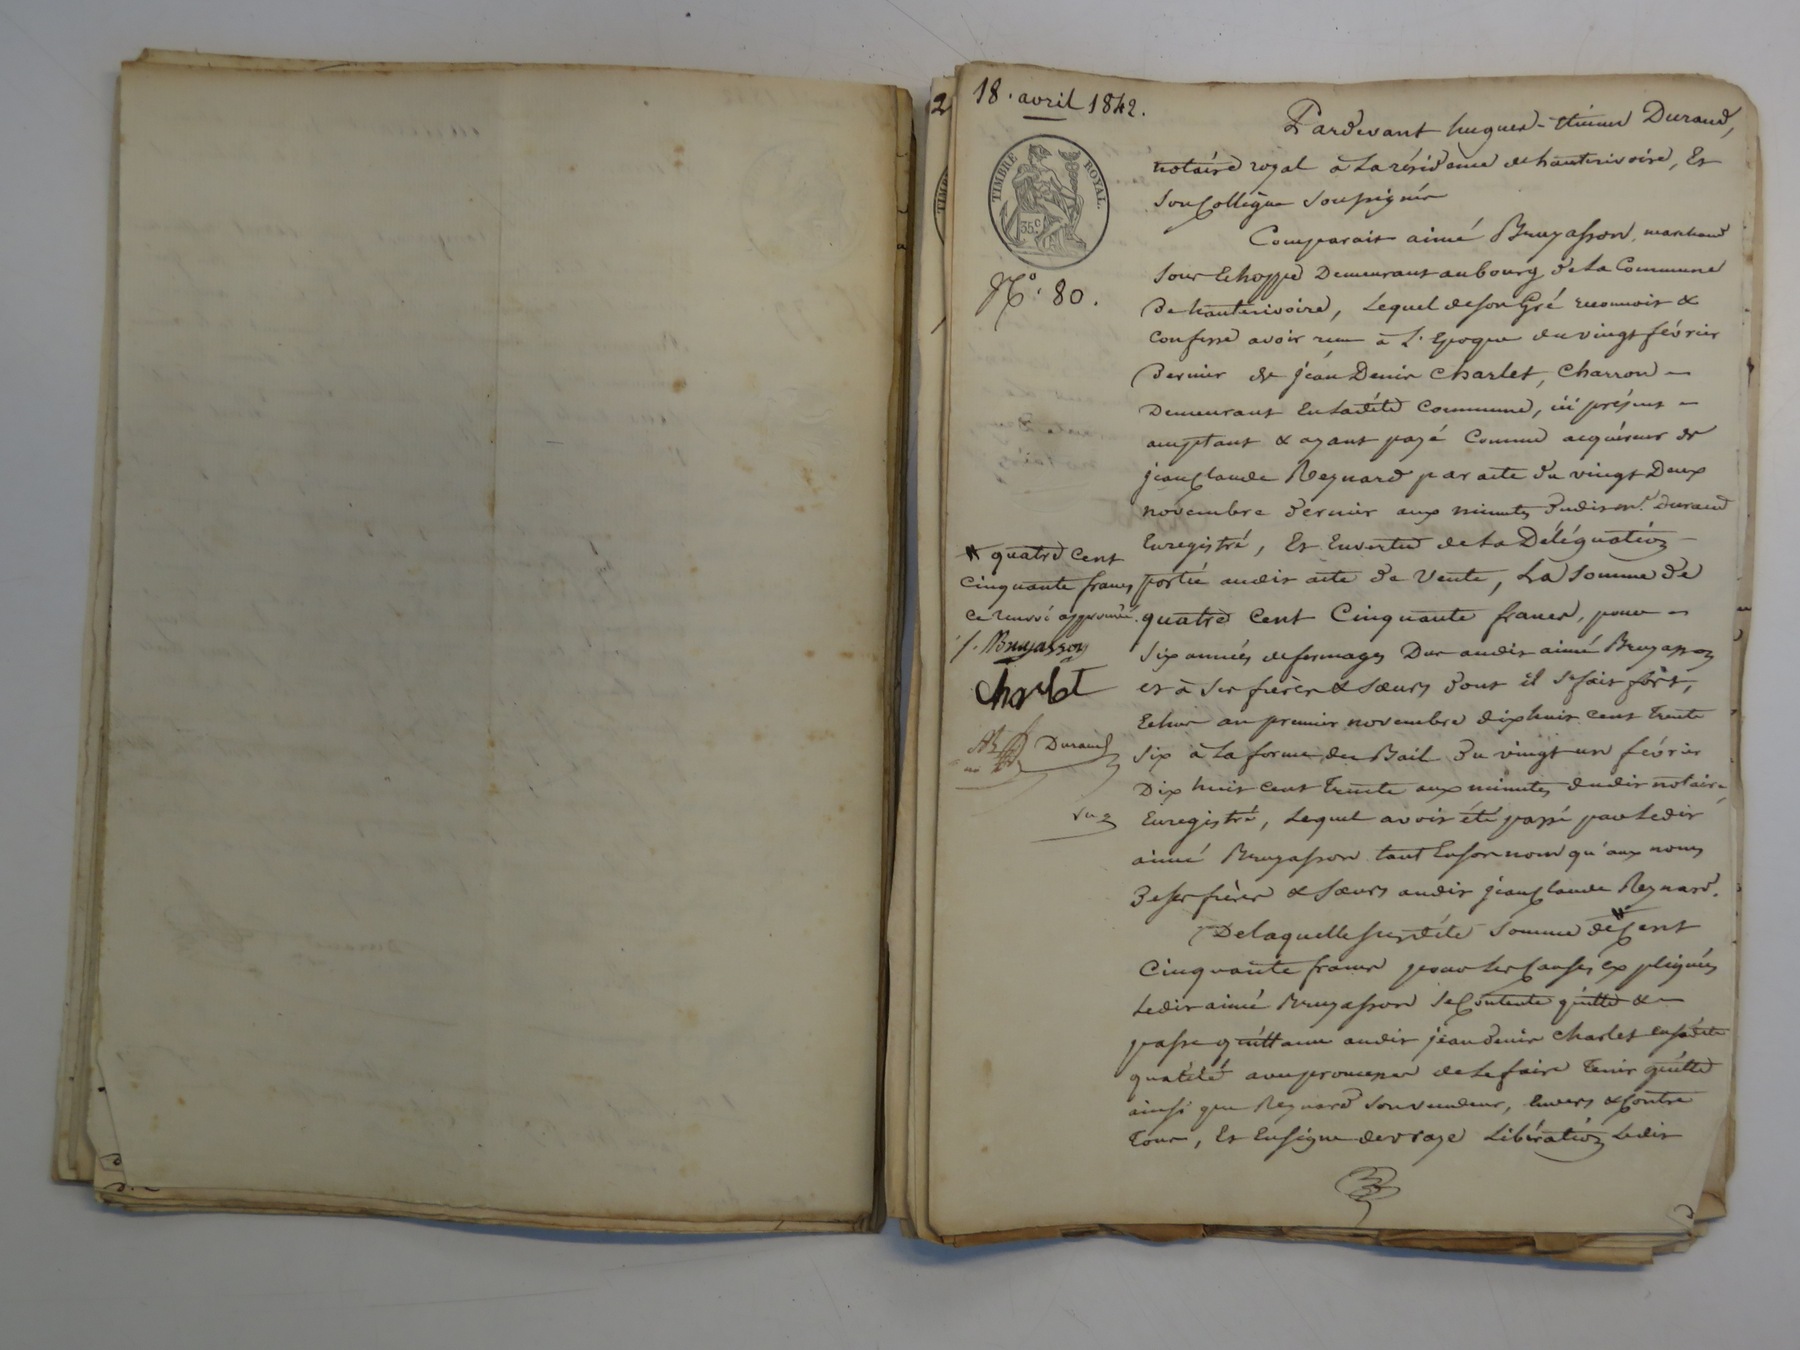 18. avril 1842.
TIMBRE ROYAL.
35 c
N.o 80.
Pardevant hugues-étienne Durand,
notaire royal à La résidence de hauterivoire, Et
Son Collègue Soussignés
Comparait aimé Bruyasson, marchand
Sous Echoppe Demeurant au bourg de La Commune
De hauterivoire, Lequel de son Gré reconnoit &
Confesse avoir reçu à L'Epoque du vingt février
Dernier de jean Denis Charlet, Charron -
Demeurant En Ladite Commune, ici présent -
acceptant & ayant payé Comme acquéreur de
jean Claude Reynard par acte du vingt Deux
novembre dernier aux minutes dudit m.e Durand
Enregistré, Et En vertu de La Délégation -
portée audit acte de Vente, La Somme de
quatre cent Cinquante francs, pour -
Six années de fermages Due audit aimé Bruyasson
et à Ses frères & Sœurs dont il Se fait fort,
Echus au premier novembre dix huit cent Trente
Six à La forme du Bail du vingt un février
Dix huit cent Trente aux minutes dudit notaire
Enregistré, Lequel avoit été passé par Ledit
aimé Bruyasson tant En son nom qu'aux noms
De ses frères & Sœurs audit jean Claude Reynard.
De laquelle susdite Somme de # Cent
Cinquante francs pour Les Causes Expliquées
Ledit aimé Bruyasson Se Contente quitte & -
passe quittance audit jean denis Charlet En sadite
qualité avec promesse de Le faire Tenir quitte
ainsi que Reynard Son vendeur, Envers & Contre
Tous, Et En Signe de vraye Libération Ledit
# quatre Cent
Cinquante francs
Ce renvoi approuvé.
Bruyasson
Charlet
Durand